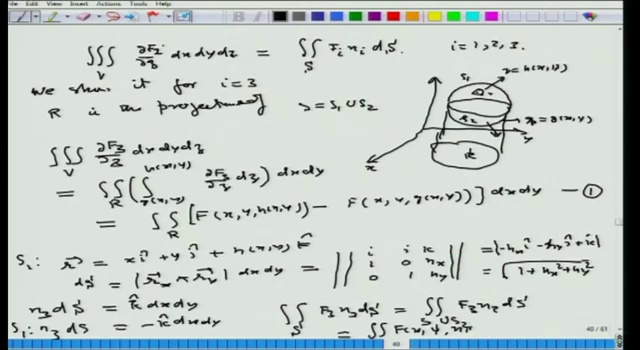 ∭_V ∂F_i/∂z dx dy dz = ∬_S F_i n_i dS. i = 1, 2, 3.
We show it for i = 3
R is the projection of S = S₁ ∪ S₂
S₁ z = h(x, y)
S₂ z = g(x, y)
R x y
∭_V ∂F₃/∂z dx dy dz
= ∬_R ( ∫_{g(x,y)}^{h(x,y)} ∂F₃/∂z dz ) dx dy
= ∬_R [F(x, y, h(x,y)) − F(x, y, g(x,y))] dx dy — ①
S₁: r⃗ = x î + y ĵ + h(x,y) k̂
dS = |r⃗_x × r⃗_y| dx dy = || i j k ; 1 0 h_x ; 0 1 h_y || = |−h_x î − h_y ĵ + k̂|
= √(1 + h_x² + h_y²)
n₃ dS = k̂ dx dy
S₁: n₃ dS = −k̂ dx dy
∬_S F₃ n₃ dS = ∬_{S₁∪S₂} F₃ n₃ dS
= ∬ F(x, y,
40 / 61
40